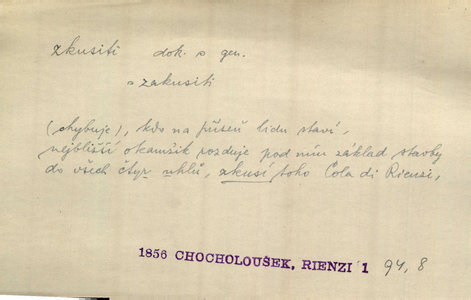 zkusiti dok. s gen.
= zakusiti
(chybuje), kdo na přízeň lidu staví,
nejbližší okamžik rozduje pod ním základ stavby
do všech čtyr uhlů, zkusí toho Cola di Rienzi,
1856 CHOCHOLOUŠEK, RIENZI 1 94, 8